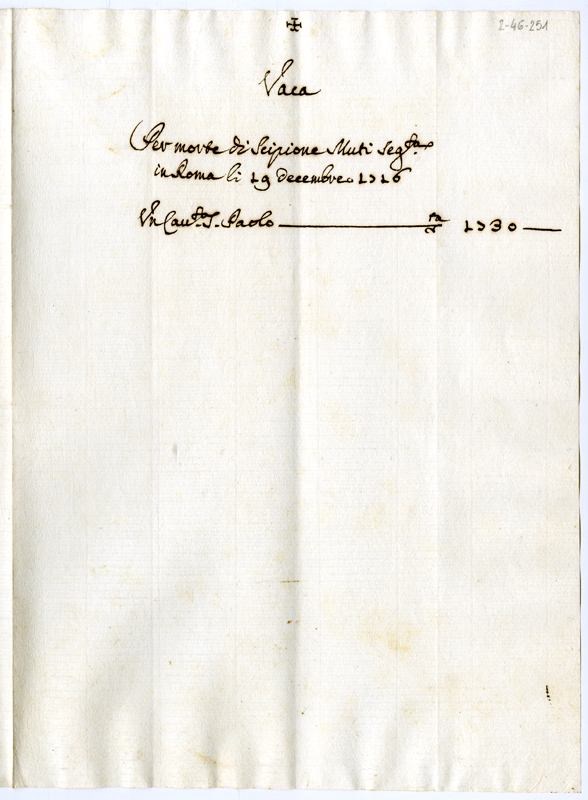 ✠
2-46-251
Vaca
Per morte di Scipione Muti seg.ta
in Roma li 19 decembre 1716
Un Cau.to S. Paolo 1730